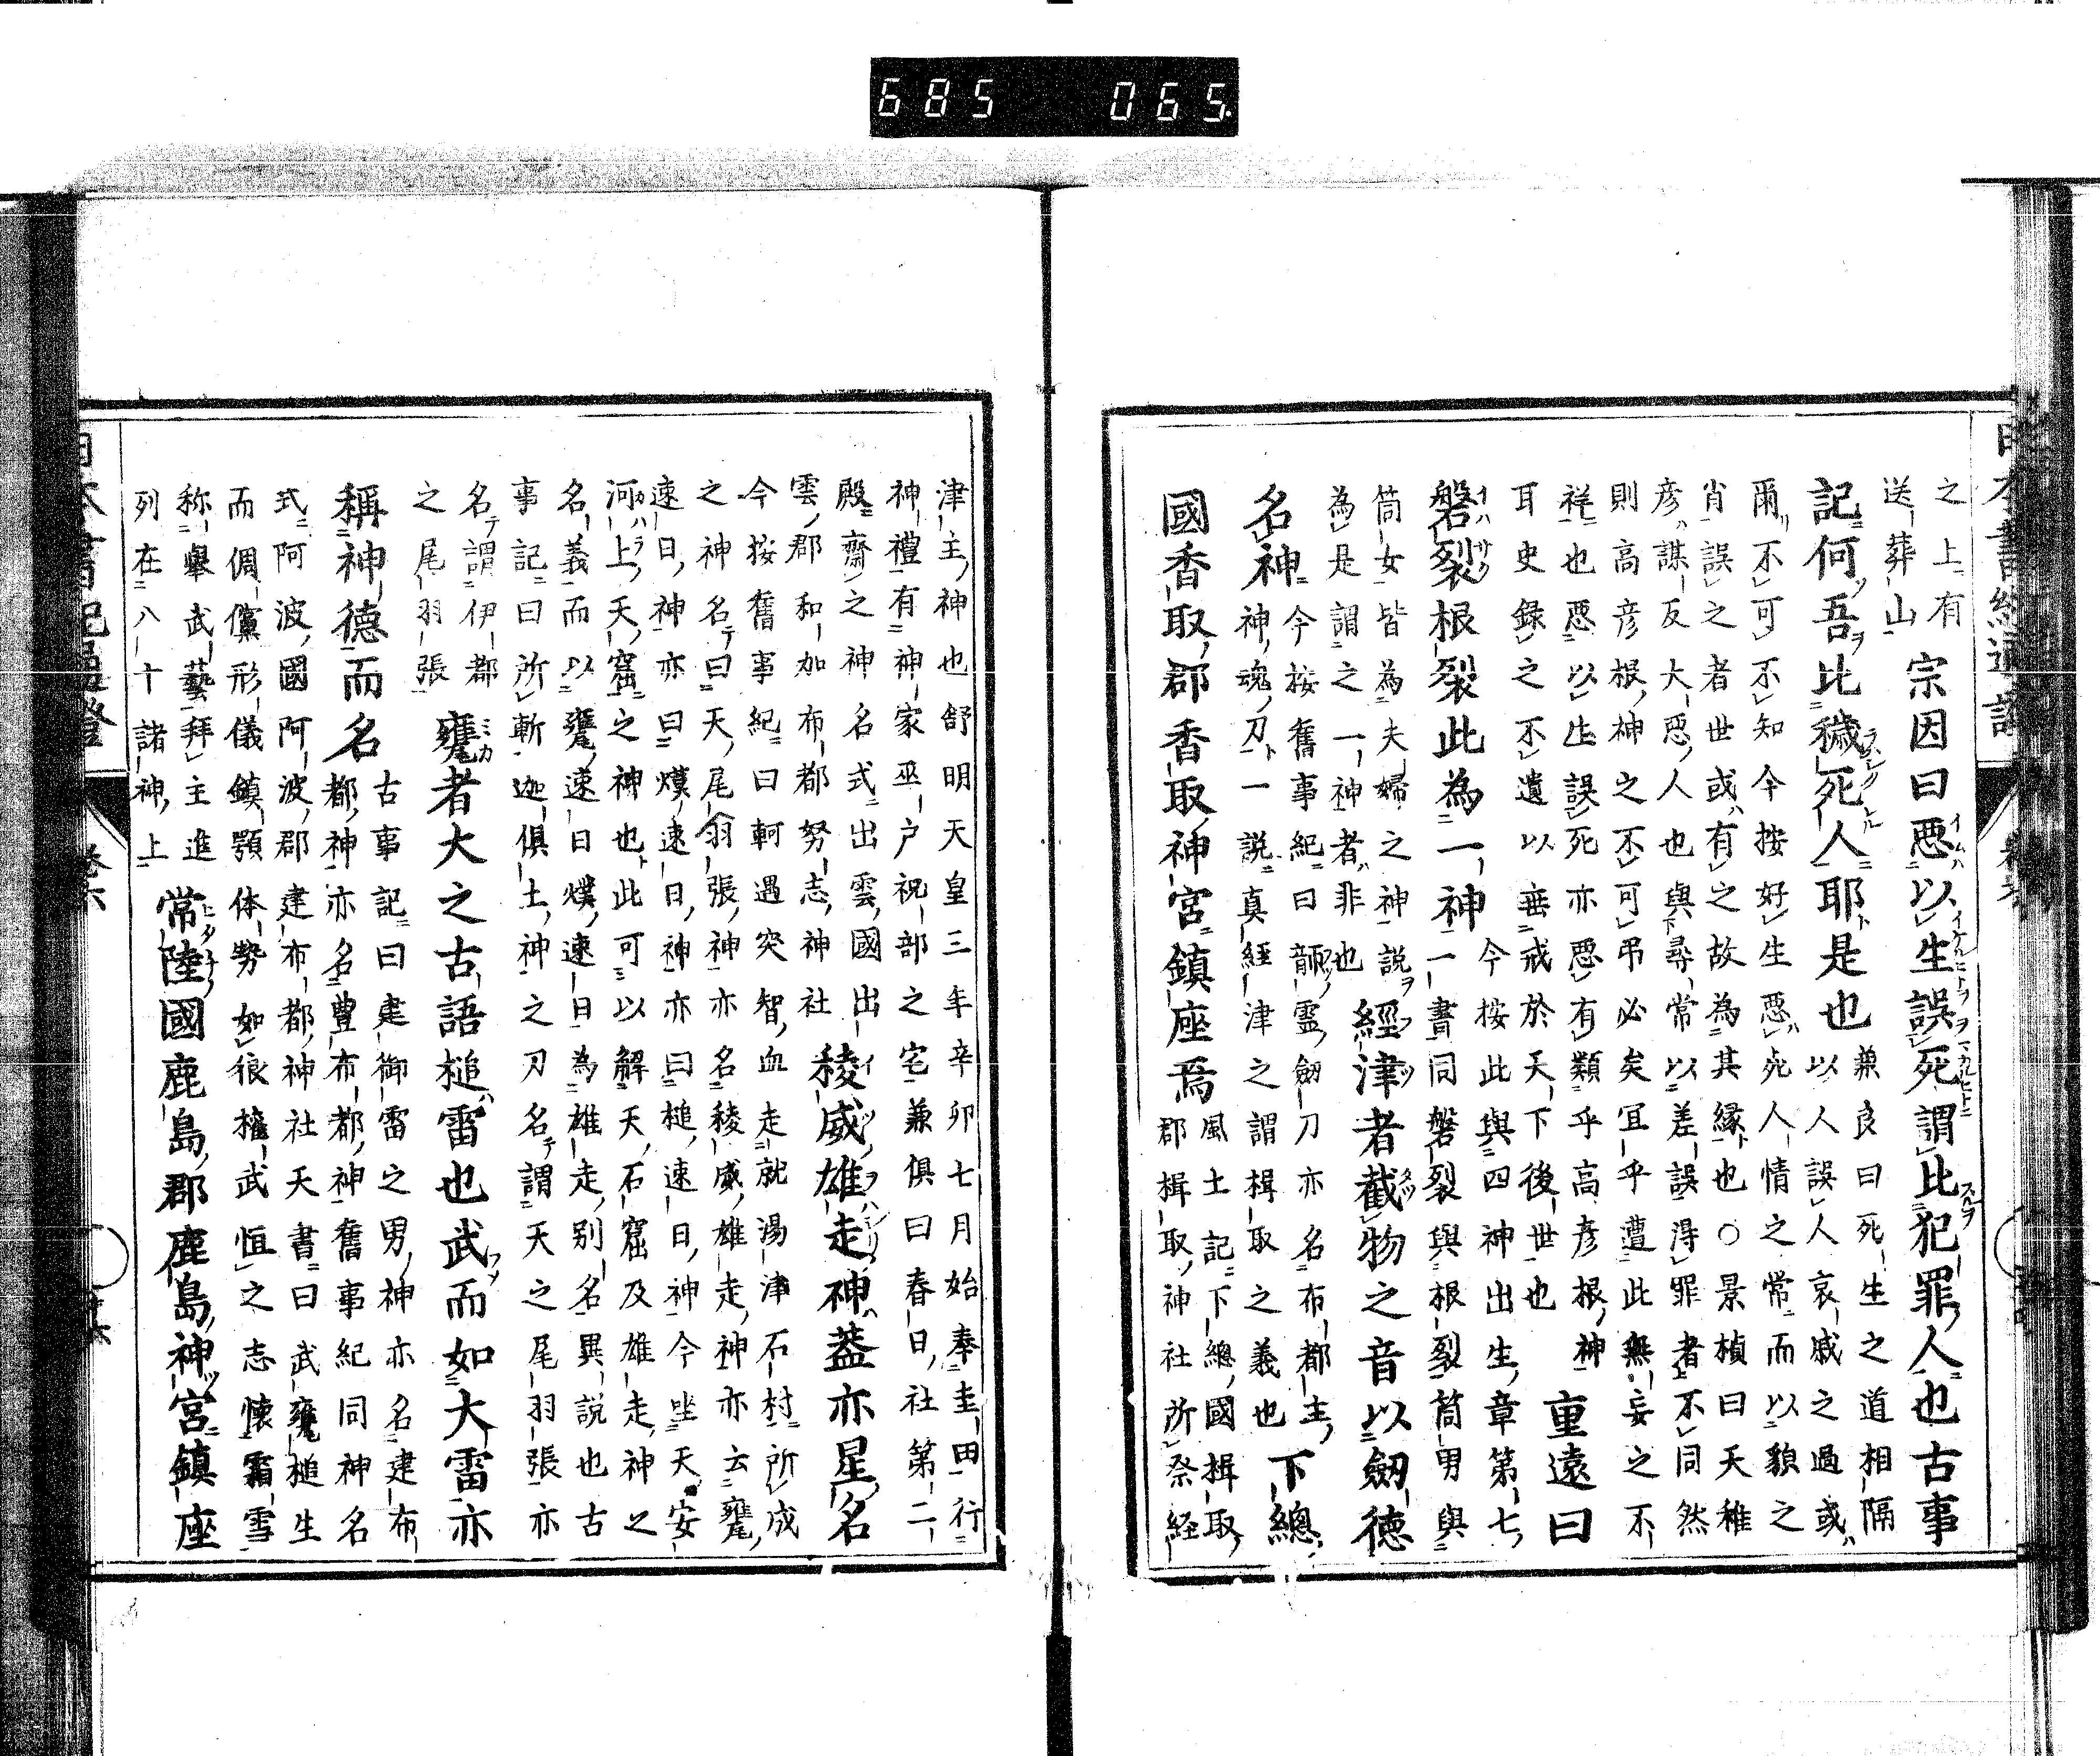 之上有
送葬山
宗因曰惡以生誤死謂比犯罪人也古事
記何吾比穢死人耶是也
兼良曰死生之道相隔
以人誤人哀戚之過或
爾不可不知今按好生惡死人情之常而以貌之
肖誤之者世或有之故為其縁也○景楨曰天稚
彦謀反大惡人也與尋常以差誤得罪者不同然
則高彦根神之不可弔必矣冝乎遭此無妄之不
祥也惡以生誤死亦惡有類乎高彦根神
耳史録之不遺以垂戒於天下後世也
重遠曰
磐裂根裂此為一神
今按此與四神出生章第七
一書同磐裂與根裂筒男與
筒女皆為夫婦之神説
為是謂之一神者非也
經津者截物之音以劔德
名神
今按舊事紀曰韴靈劔刀亦名布都主
神魂刀一説真經津之謂楫取之義也
下總
國香取郡香取神宮鎮座焉
風土記下總國楫取
郡楫取神社所祭経
津主神也舒明天皇三年辛卯七月始奉圭田行
神禮有神家巫户祝部之宅兼俱曰春日社第二
殿齋之神名式出雲國出
雲郡和加布都努志神社
稜威雄走神蓋亦星名
今按舊事紀曰軻遇突智血走就湯津石村所成
之神名曰天尾羽張神亦名稜威雄走神亦云甕
速日神亦曰熯速日神亦曰槌速日神今坐天安
河上天窟之神也此可以解天石窟及雄走神之
名義而以甕速日熯速日為雄走別名異説也古
事記曰所斬迦俱土神之刀名謂天之尾羽張亦
名謂伊都
之尾羽張
甕者大之古語槌雷也武而如大雷亦
稱神德而名
古事記曰建御雷之男神亦名建布
都神亦名豊布都神舊事紀同神名
式阿波國阿波郡建布都神社天書曰武甕槌生
而倜儻形儀鎮顎体勢如狼權武恒之志懷霜雪
称舉武藝拜主進
列在八十諸神上
常陸國鹿島郡鹿島神宮鎮座
685 065